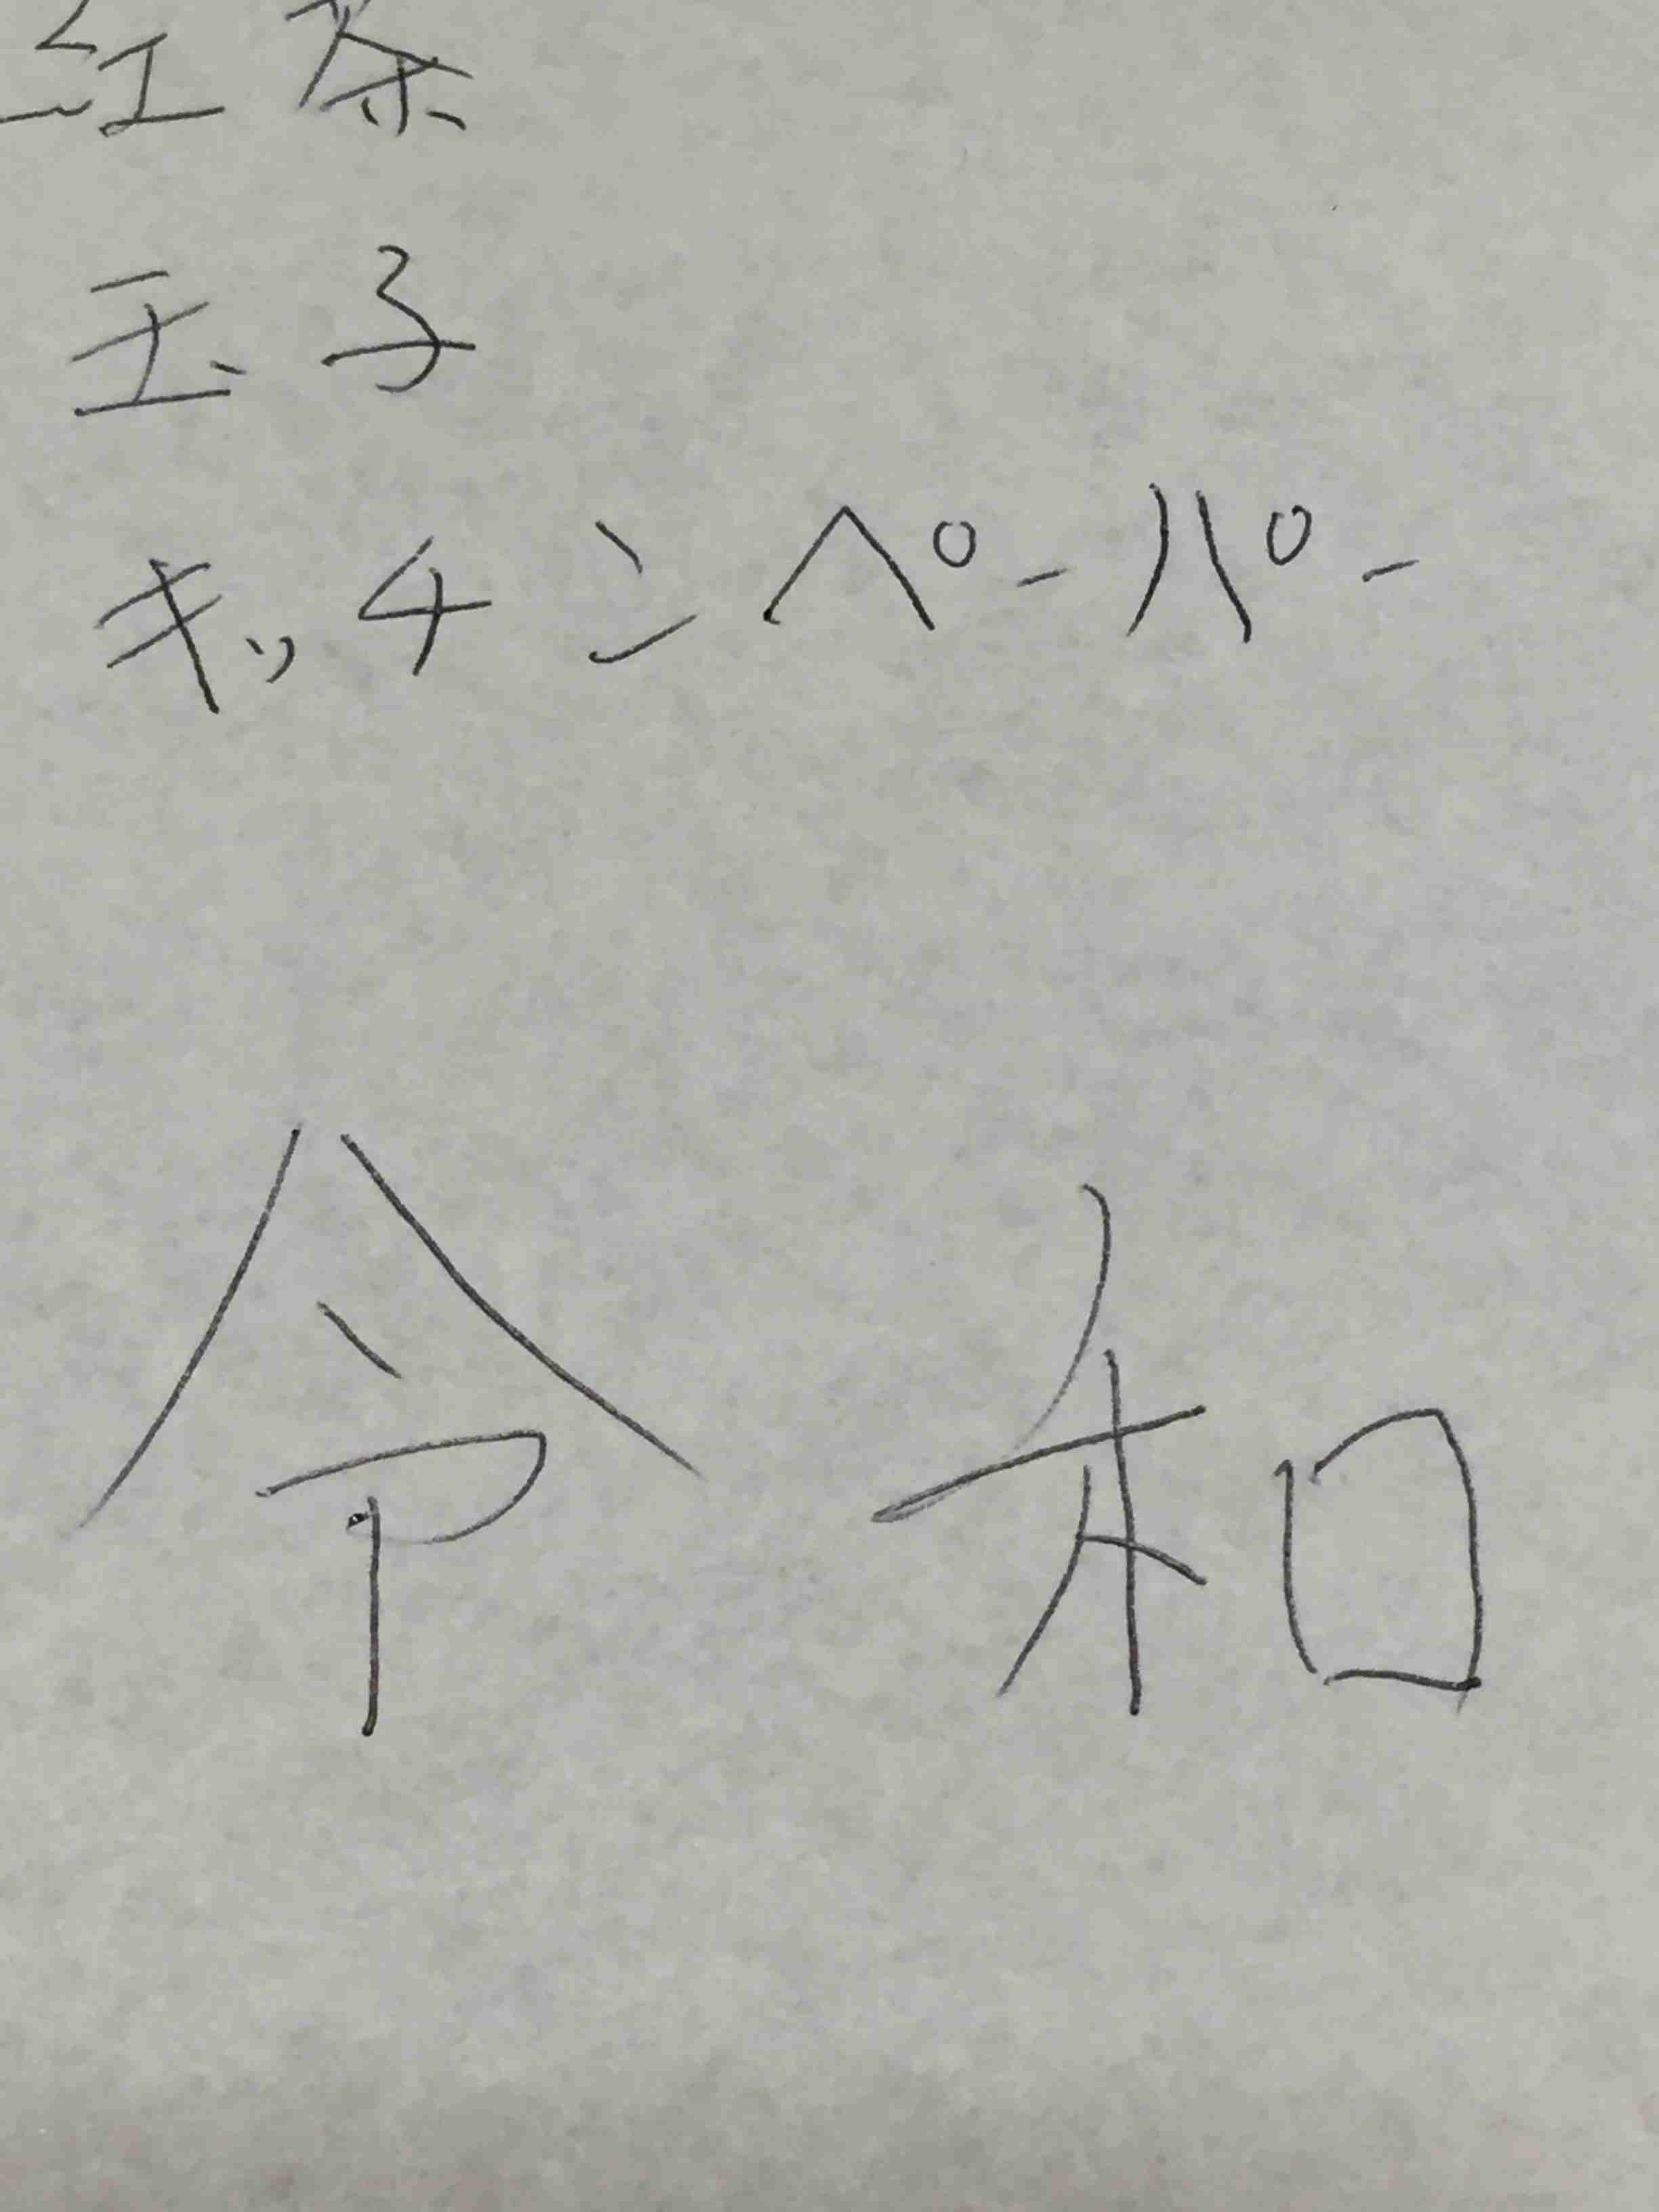 紅茶
玉子
キッチンペーパー
令和